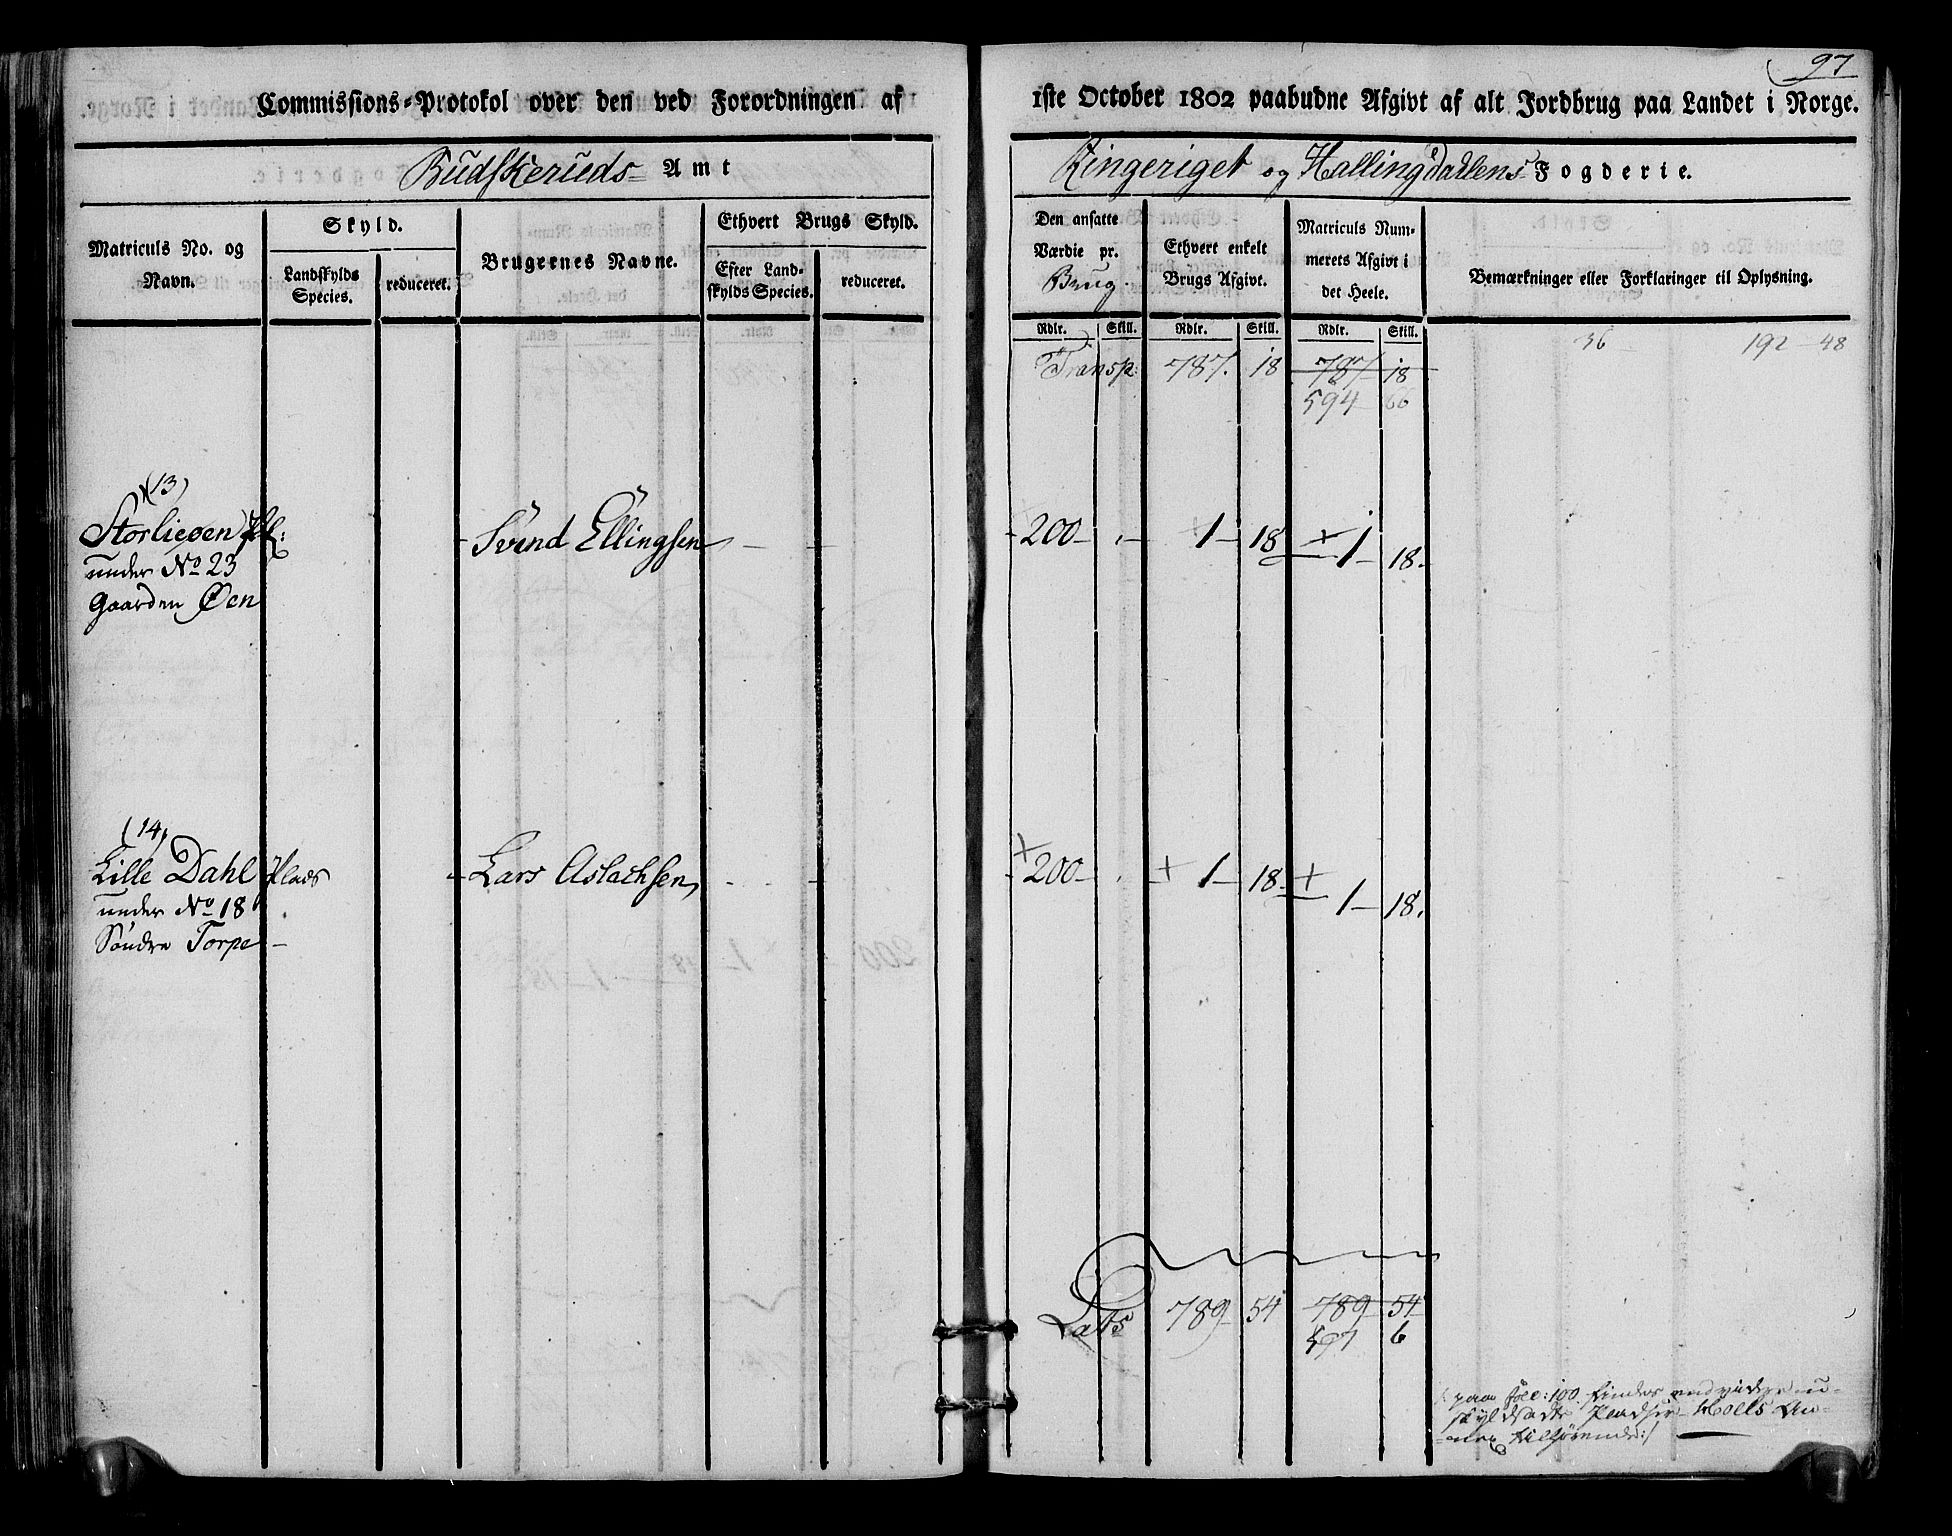 97
Commissions-Protokol over den ved Forordningen af 1ste October 1802 paabudne Afgivt af alt Jordbrug paa Landet i Norge.
Budskeruds Amt
Ringeriget og Hallingdahlens Fogderie.
Matriculs No. og Navn.
Skyld.
Landskylds Species.
reduceret.
Brugernes Navne.
Ethvert Brugs Skyld.
Efter Landskylds Species.
reduceret.
Den ansatte Værdie pr. Brug
Ethvert enkelt Brugs Afgivt.
Matriculs Nummerets Afgivt i det Heele.
Bemærkninger eller Forklaringer til Oplysning.
Rdlr. Skill. Rdlr. Skill. Rdlr. Skill.
36 192 - 48
Transp: 787. 18 787 18
594 66
(13)
Storlieøen Pl: Svend Ellingsen - - 200 - 1 - 18 1 - 18.
under No 23
Gaarden Øen
(14)
Lille Dahl Plads Lars Aslachsen - - 200 - 1 - 18 1 - 18.
under No 18
Søndre Torpe -
Lats 789 54 789 54
597 6
paa Fol: 100 findes endvidere u-
skyldsatte Pladser Hoels An-
nex tilhørende:/